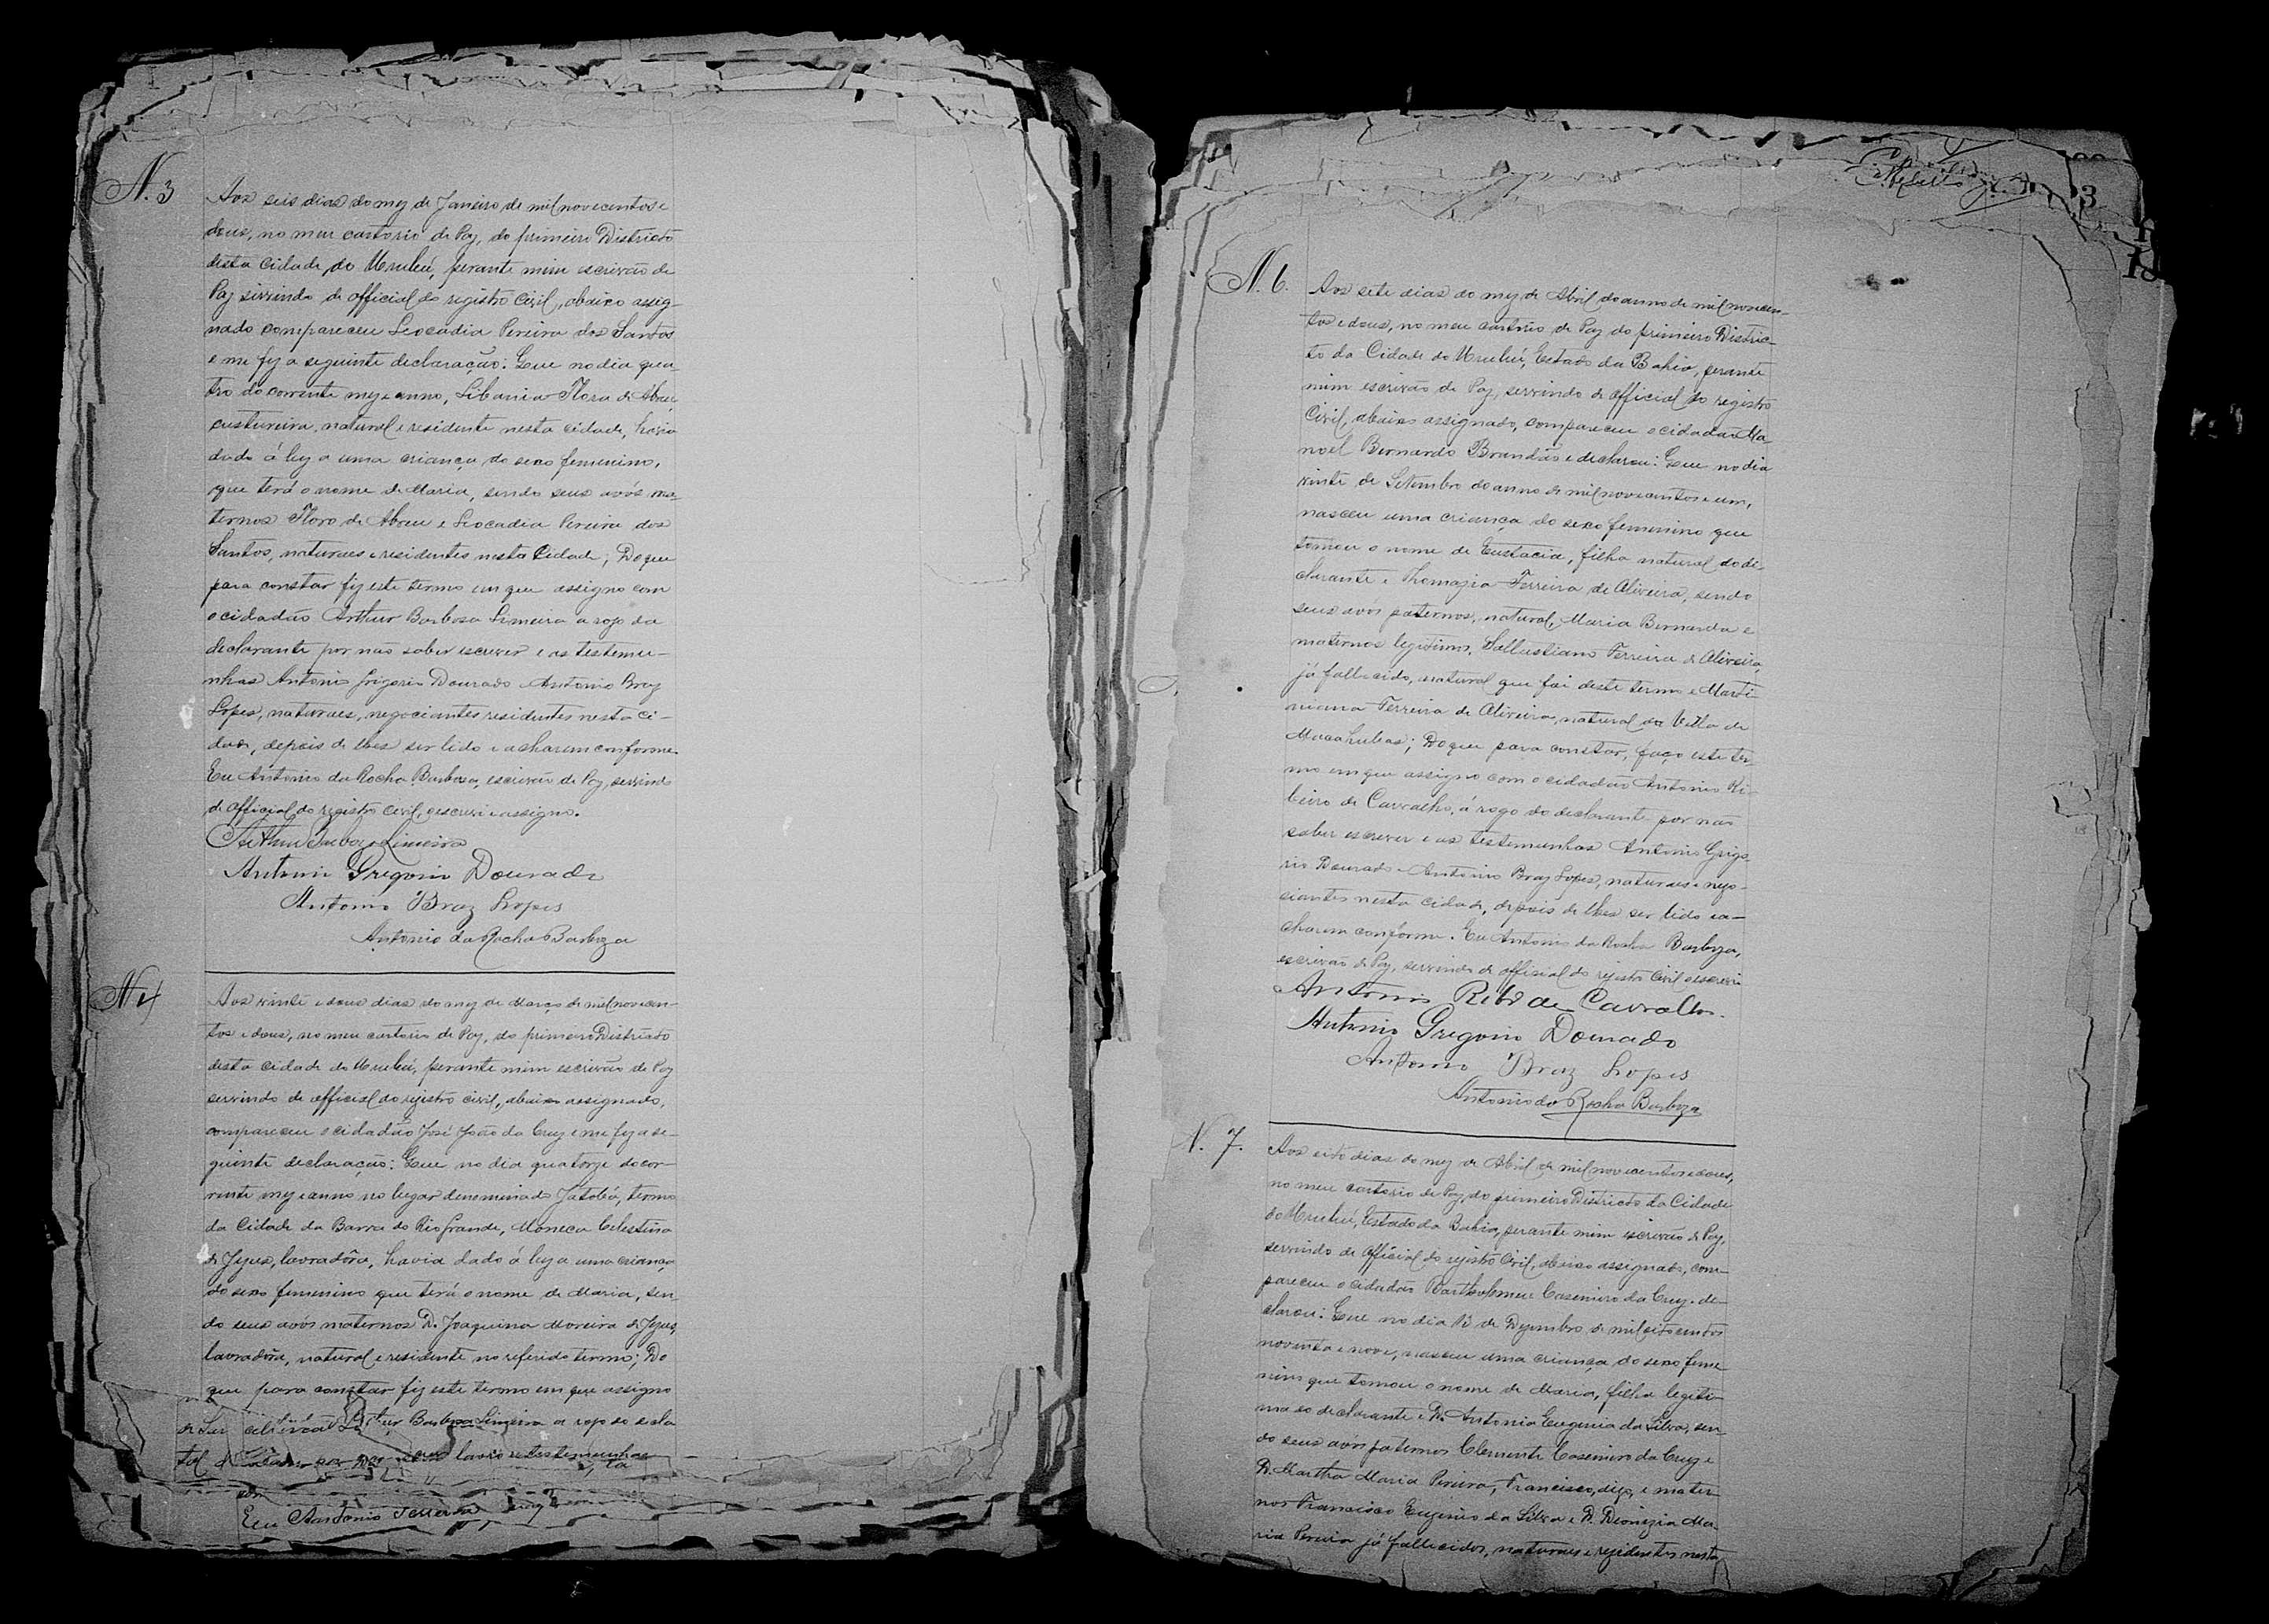 N. 3
Aos seis dias do mez de Janeiro de mil novecentos e
dous, no meu cartorio de Paz, do primeiro Districto
desta Cidade do Urubú, perante mim escrivão de
Paz sirvindo de official do registro Civil, abaixo assig-
nado compareceu Leocadia Pereira dos Santos
e me fez a seguinte declaração: Que no dia qua
tro do corrente mez e anno, Libania Flora de Abreu
custureira, natural e residente nesta cidade, havia
dado á luz a uma criança do sexo femenino,
que terá o nome de Maria, sendo seus avós ma-
ternos Floro de Abreu e Leocadia Pereira dos
Santos, naturaes e residentes nesta Cidade; Do que
para constar fiz este termo em que assigno com
o cidadão Arthur Barbosa Limeira a rogo da
declarante por não saber escrever e as testemu-
nhas Antonio Grigorio Dourado e Antonio Braz
Lopes, naturaes, negociantes residentes nesta ci-
dade, depois de lhes ser lido e acharem conforme.
Eu Antonio da Rocha Barboza, escrivão de Paz, servindo
de official do registro civil, o escrevi e assigno.
Arthur Barboza Limeira
Antonio Gregorio Dourado
Antonio Braz Lopes
Antonio da Rocha Barboza
N 4
Aos vinte e dous dias do mez de Março de mil novecen-
tos e dous, no meu cartorio de Paz, do primeiro Districto
desta cidade do Urubú, perante mim escrivão de Paz
servindo de official do rejistro civil, abaixo assignado,
compareceu o cidadão José João da Cruz e me fez a se-
guinte declaração: Que no dia quatorze do cor-
rente mez e anno no lugar denominado Jatobá, termo
da Cidade da Barra do Rio Grande, Moneca Celestina
de Jezus, lavradôra, havia dado á luz a uma criança
do sexo femenino que terá o nome de Maria, sen-
do seus avós maternos D. Joaquina Moreira de Jezus,
lavradôra, natural e residente no referido termo; Do
que para constar fiz este termo em que assigno
Barboza Limeira a rogo do decla
testemunhas
Eu Antonio Ferreira
3
N. 6.
Aos sete dias do mez de Abril do anno de mil novecen-
tos e dous, no meu cartorio de Paz do primeiro Distric-
to da Cidade do Urubú, Estado da Bahia, perante
mim escrivão de Paz, servindo de official do registro
Civil, abaixo assignado, compareceu o cidadão Ma
noel Bernardo Brandão e declarou: Que no dia
vinte de Setembro do anno de mil novecentos e um,
nasceu uma criança do sexo femenino que
tomou o nome de Eustacia, filha natural do de-
clarante e Thomazia Ferreira de Oliveira, sendo
seus avós paternos, natural, Maria Bernarda e
maternos legitimos, Sallustiano Ferreira de Oliveira,
já fallecido, natural que foi deste termo e Marti-
niana Ferreira de Oliveira, natural da Villa de
Macahubas; Do que para constar, faço este ter-
mo em que assigno com o cidadão Antonio Ri-
beiro de Carvalho, á rogo do declarante por não
saber escrever e as testemunhas Antonio Grigo
rio Dourado e Antonio Braz Lopes, naturaes e nego-
ciantes nesta cidade, depois de lhes ser lido e a-
charem conforme. Eu Antonio da Rocha Barboza,
escrivão de Paz, servindo de official do rejistro Civil o escrevi
Antonio Ribo de Carvalho.
Antonio Gregorio Dourado
Antonio Braz Lopes
Antonio da Rocha Barboza
N. 7.
Aos oito dias do mez de Abril de mil novecentos e dous,
no meu cartorio de Paz, do primeiro Districto da Cidade
do Urubú, Estado da Bahia, perante mim escrivão de Paz,
servindo de official do rejistro Civil, abaixo assignado, com-
pareceu o cidadão Bartholomeu Casemiro da Cruz e de-
clarou: Que no dia 13 de Dezembro de mil oito centos
noventa e nove, nasceu uma criança do sexo feme
nino que tomou o nome de Maria, filha legiti-
ma do declarante e D. Antonia Eugenia da Silva, sen-
do seus avós paternos Clemente Casemiro da Cruz e
D. Martha Maria Pereira, Francisco, digo, e mater-
nos Francisco Eugenio da Silva e D. Dionizia Ma-
ria Pereira já fallecidos, naturaes e rezidentes nesta